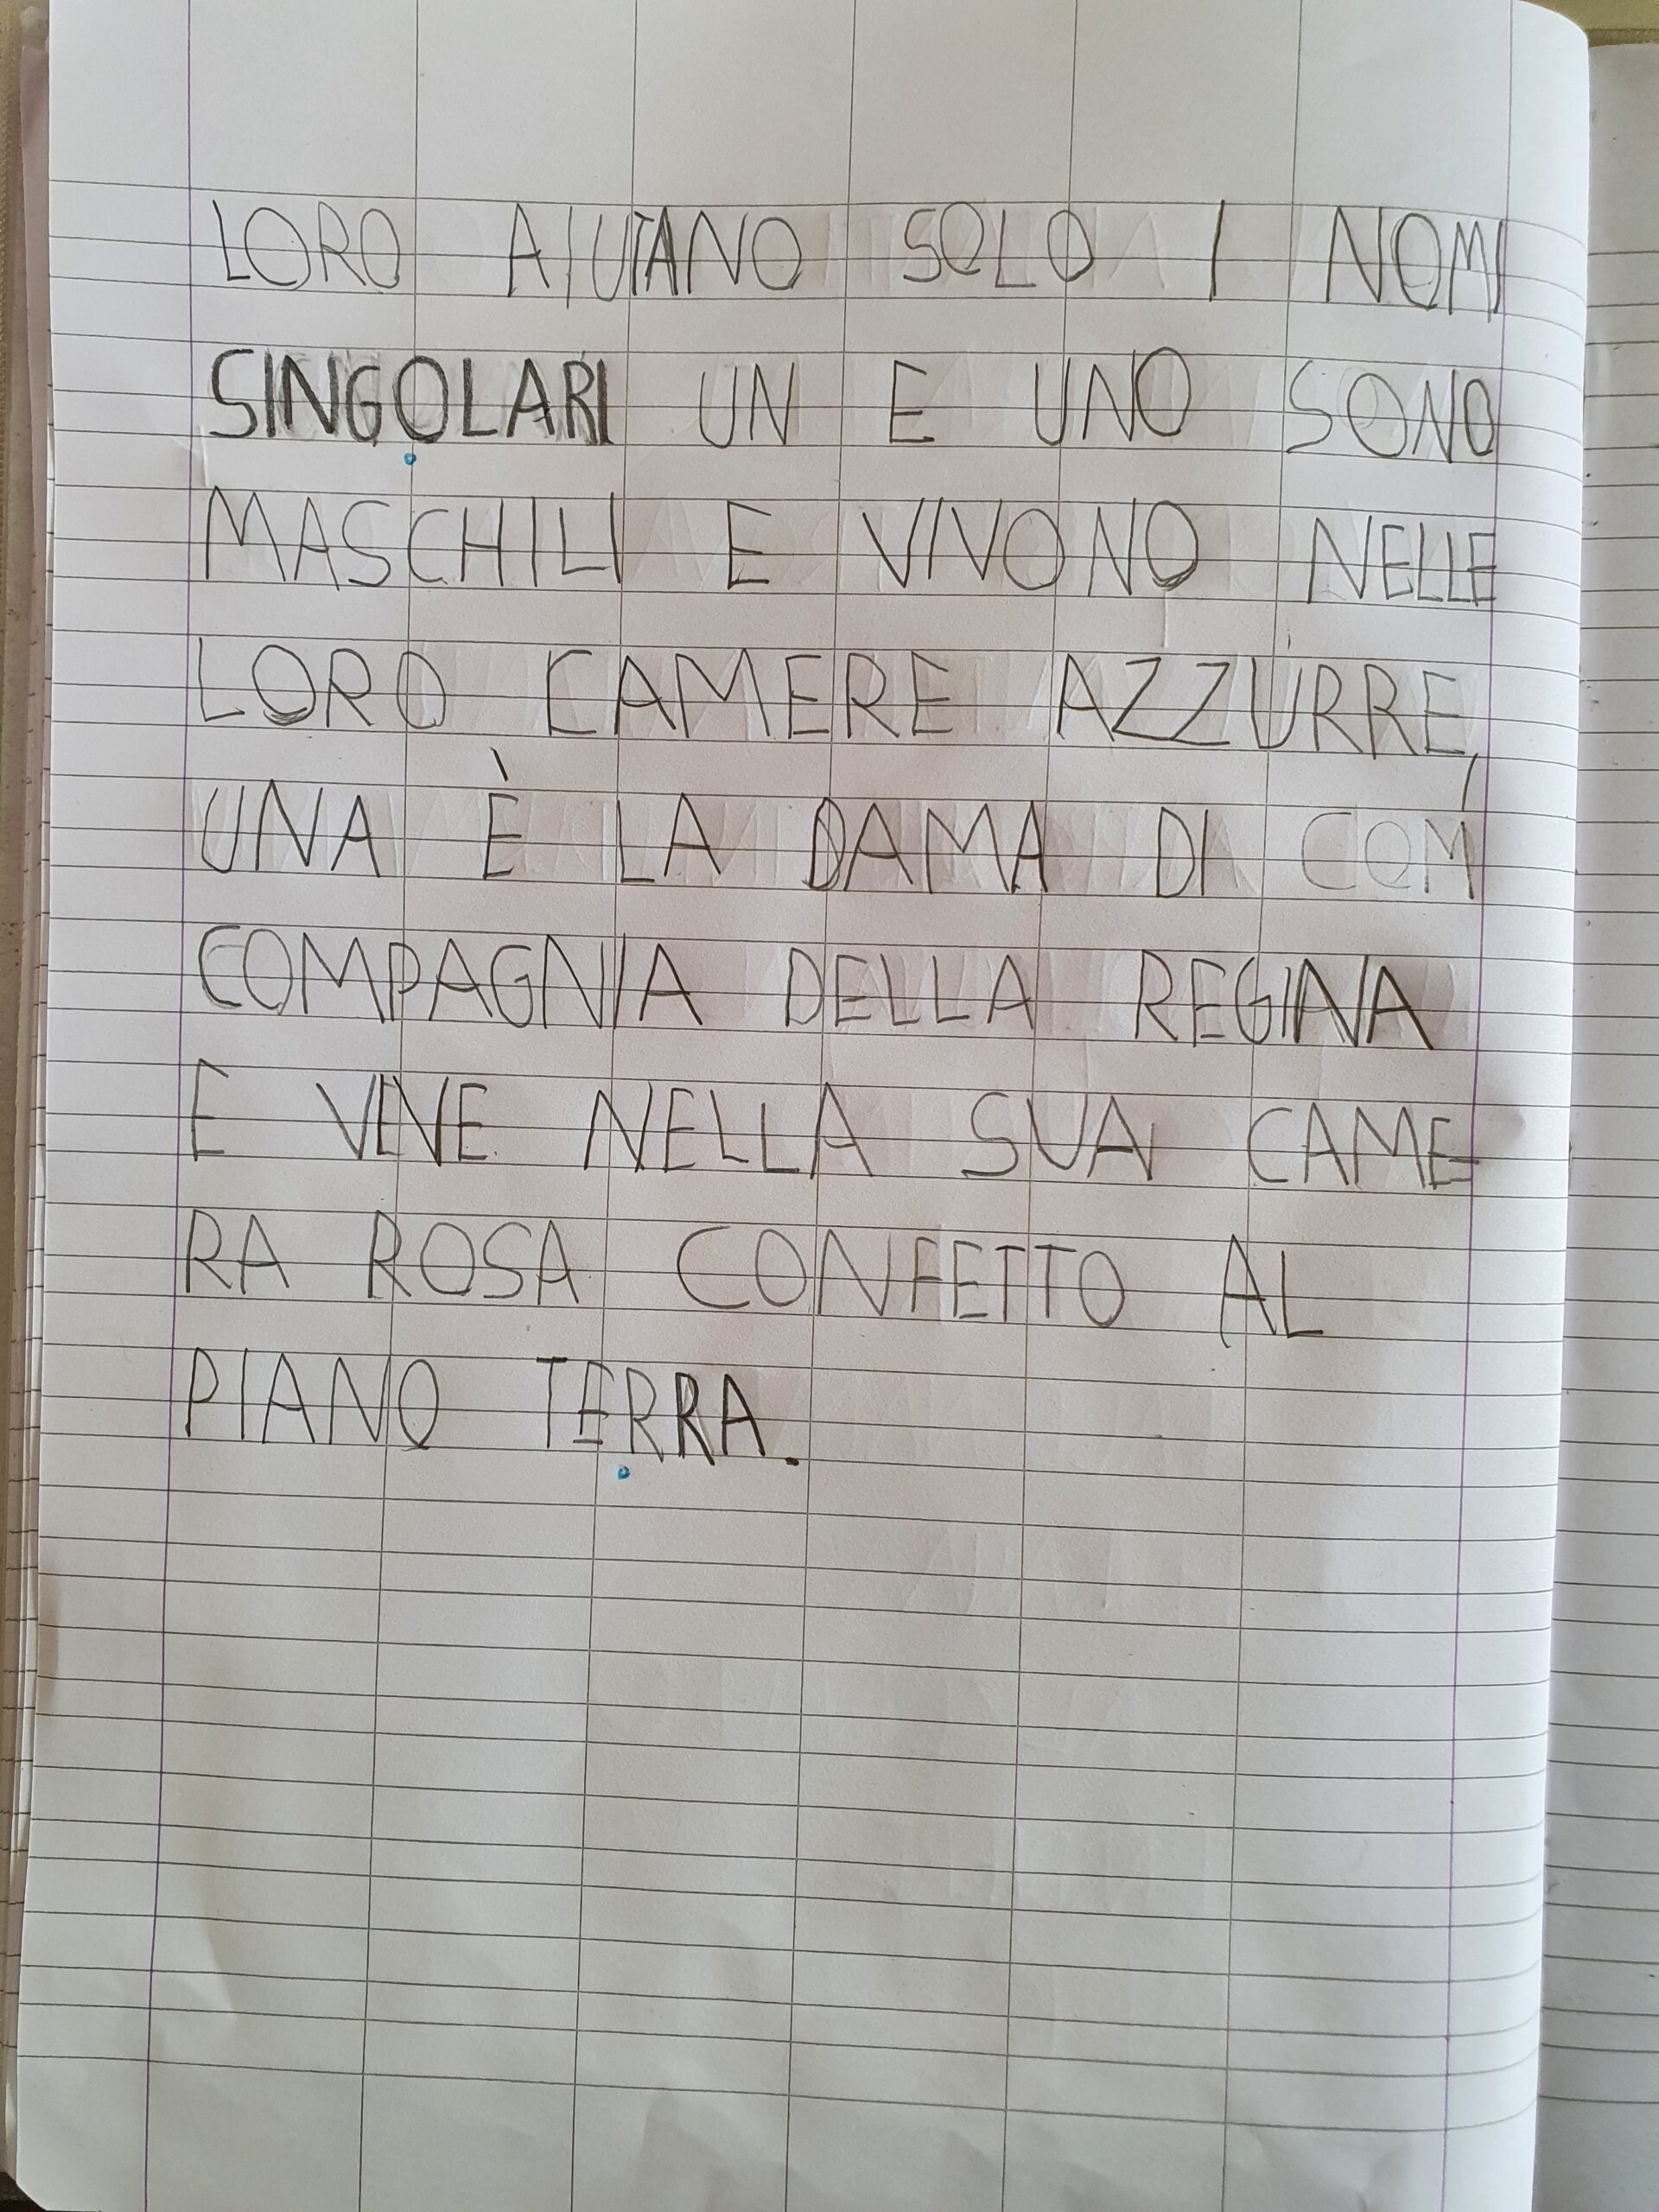 LORO AIUTANO SOLO I NOMI
SINGOLARI UN E UNO SONO
MASCHILI E VIVONO NELLE
LORO CAMERE AZZURRE,
UNA È LA DAMA DI COM
COMPAGNIA DELLA REGINA
E VIVE NELLA SUA CAME-
RA ROSA CONFETTO AL
PIANO TERRA.